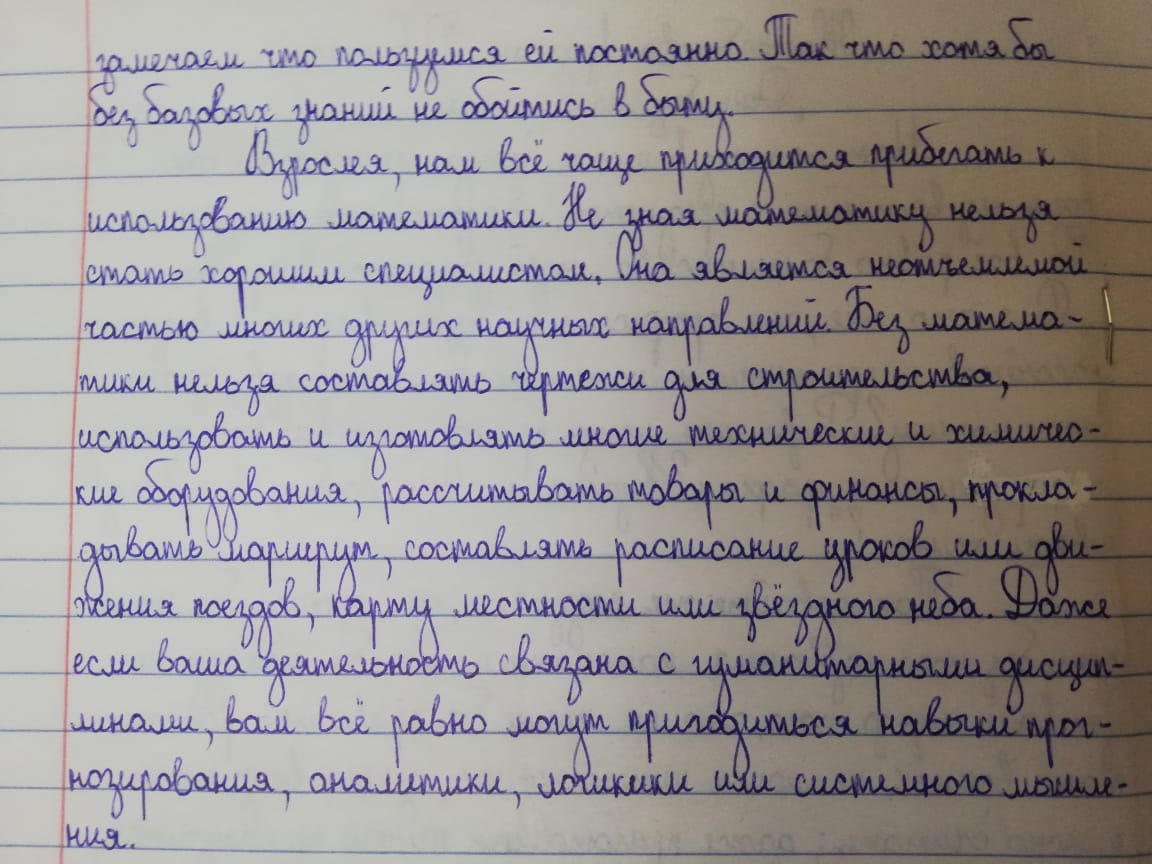 замечаем что пользуемся ей постоянно. Так что хотя бы
без базовых знаний не обойтись в быту.
Взрослея, нам всё чаще приходится прибегать к
использованию математики. Не зная математику нельзя
стать хорошим специалистом. Она является неотъемлемой
частью многих других научных направлений. Без матема-
тики нельзя составлять чертежи для строительства,
использовать и изготовлять многие технические и химичес-
кие оборудования, рассчитывать товары и финансы, прокла-
дывать маршрут, составлять расписание уроков или дви-
жения поездов, карту местности или звёздного неба. Даже
если ваша деятельность связана с гуманитарными дисцип-
линами, вам всё равно могут пригодиться навыки прог-
нозирования, аналитики, логикики или системного мышле-
ния.